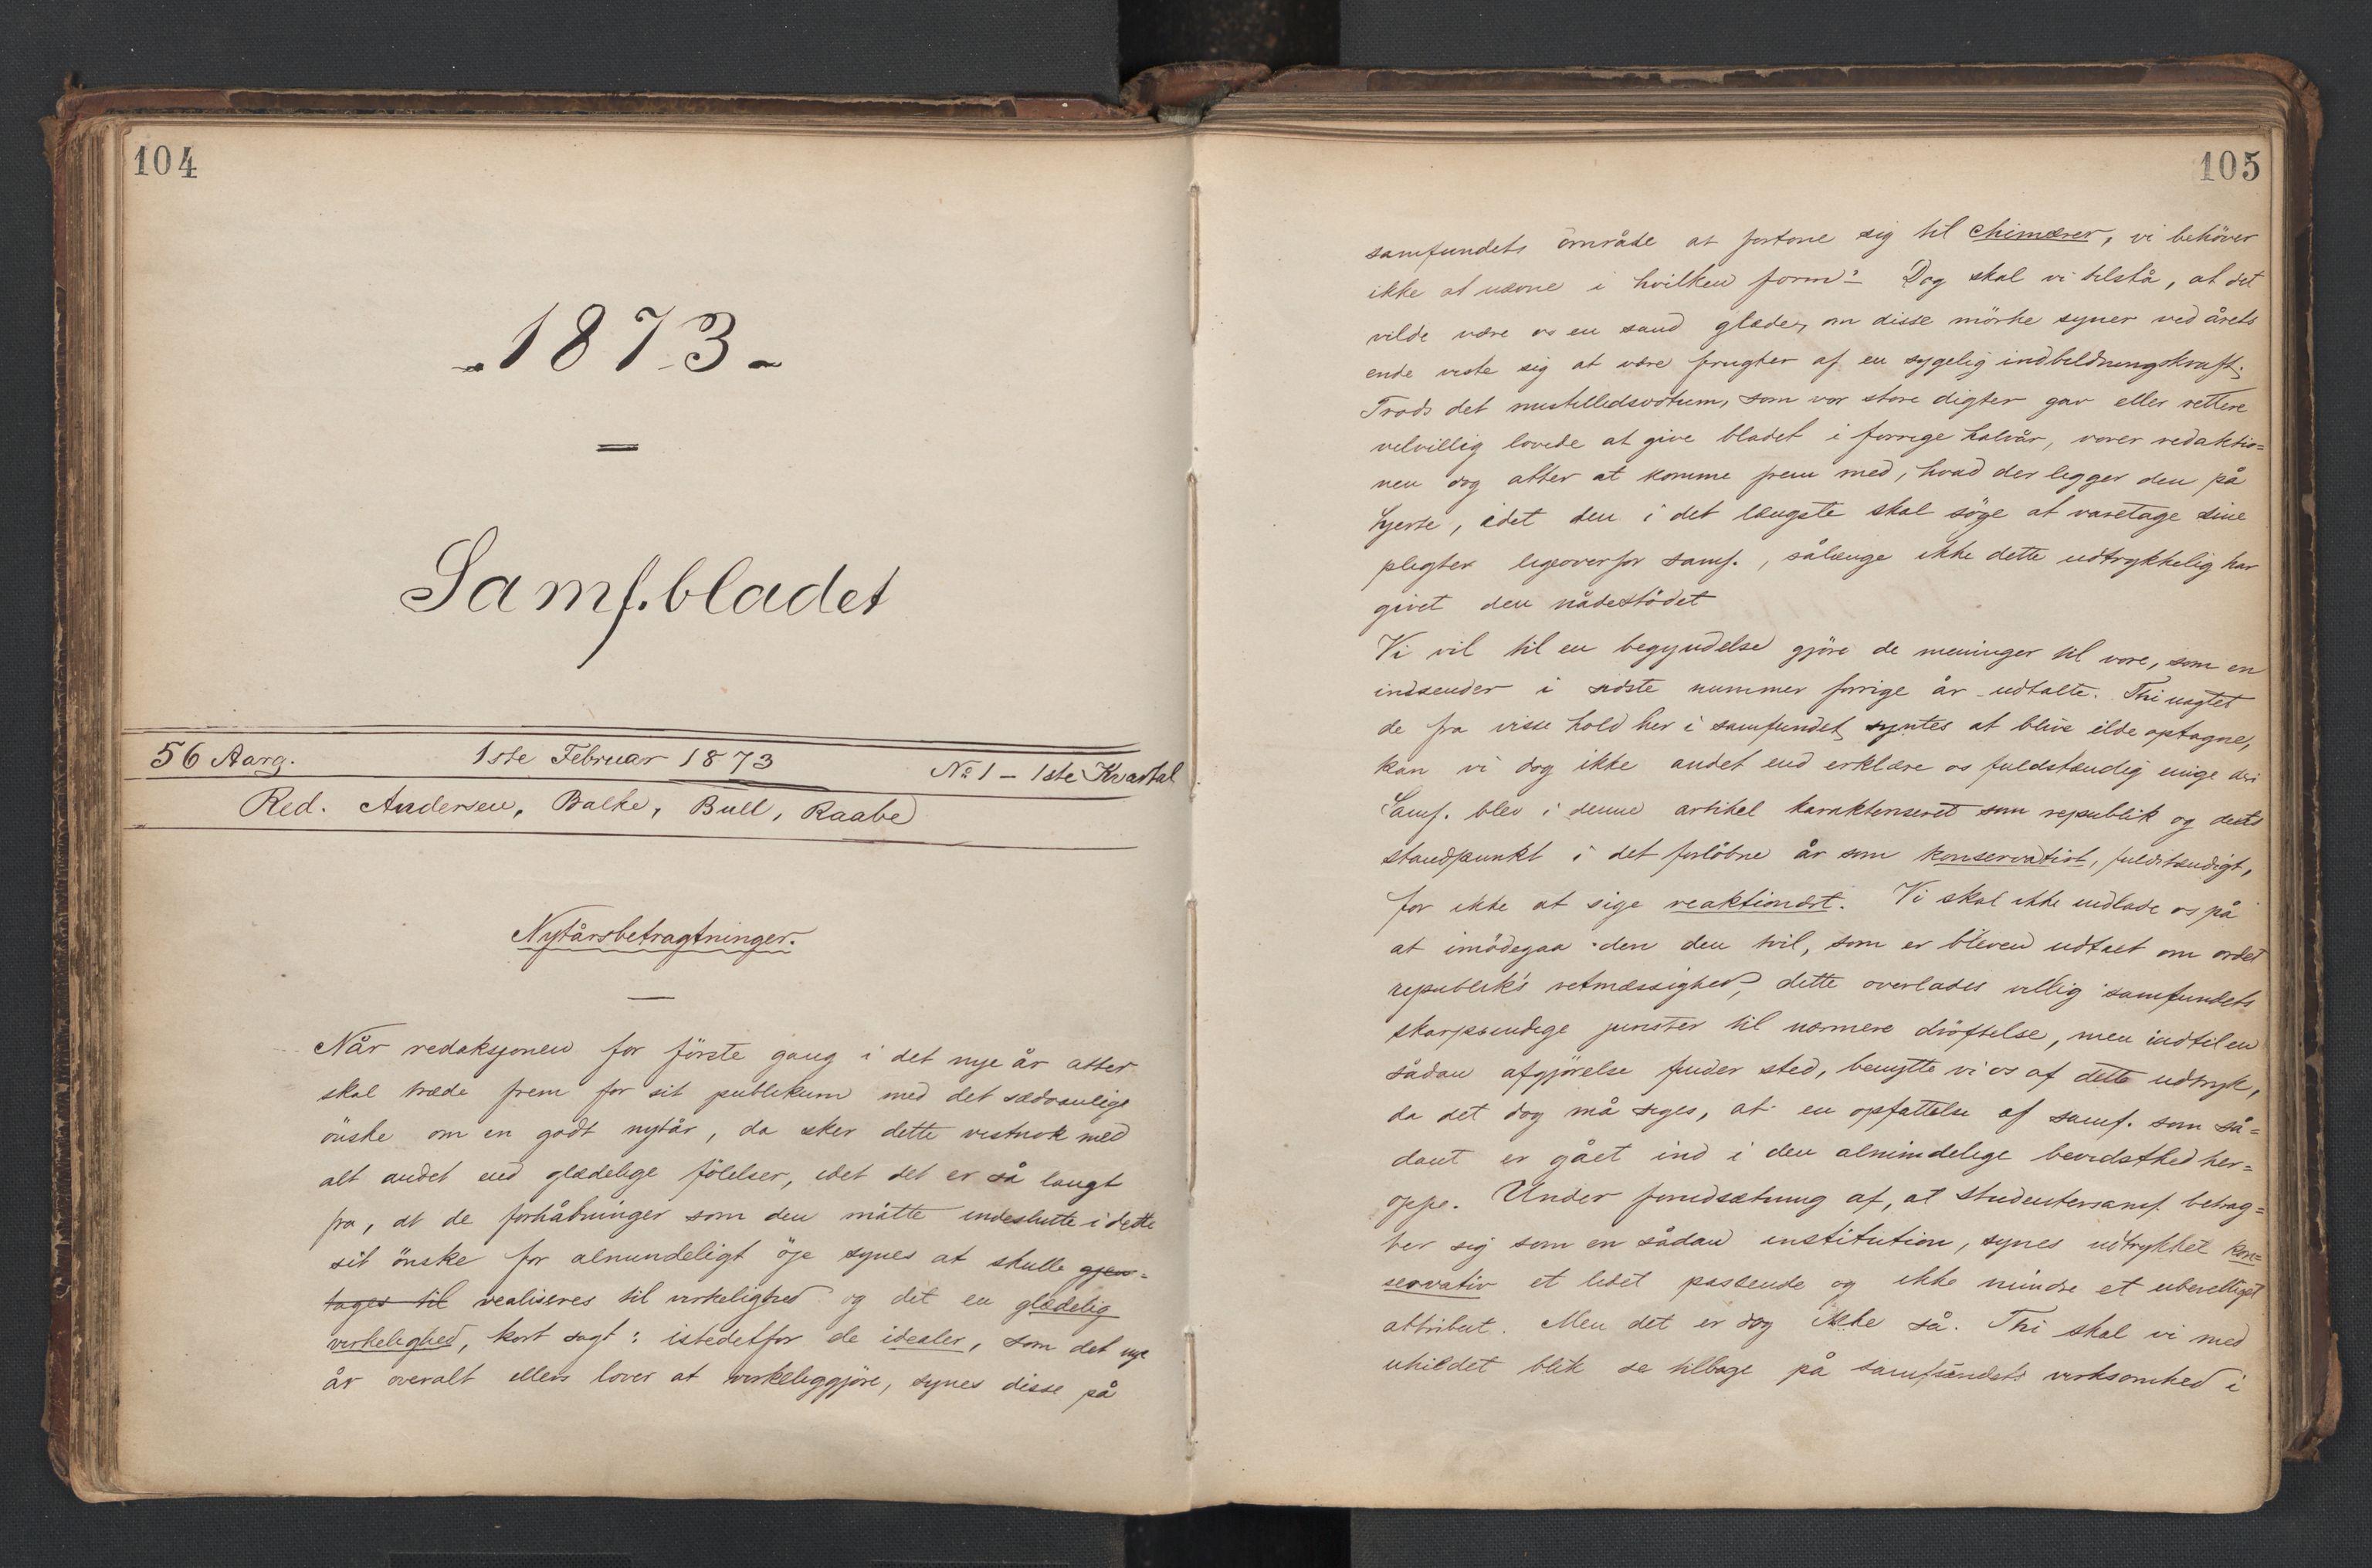 104
-1873-
=
Samf.bladet
56 Aarg. 1ste Februar 1873 No 1 - 1ste Kvartal
Red. Andersen, Balke, Bull, Raabe
Nytårsbetragtninger.
Når redaksjonen for förste gang i det nye år atter
skal træde frem for sit publikum med det sædvanlige
önske om en godt nytår, da sker dette vistnok med
alt andet end glædelige fölelser, idet det er så langt
fra, at de forhåbninger som den måtte indeslutte i dette
sit önske for almindeligt öje synes at skulle gjen-
tages til realiseres til virkelighed og det en glædelig
virkelighed, kort sagt: istedetfor de idealer, som det nye
år overalt ellers lover at virkeliggjöre, synes disse på
105
samfundets område at fortone sig til chimærer, vi behöver
ikke at nævne i hvilken form? - Dog skal vi tilstå, at det
vilde være os en sand glæde, om disse mörke syner ved årets
ende viste sig at være frugter af en sygelig indbildningskraft.
Trods det mistillidsvotum, som vor store digter gav eller rettere
velvillig lovede at give bladet i forrige halvår, vover redaktio=
nen dog atter at komme frem med, hvad der ligger den på
hjerte, idet den i det længste skal söge at varetage sine
pligter ligeoverfor samf., sålænge ikke dette udtrykkelig har
givet den nådestödet
Vi vil til en begyndelse gjöre de meninger til vore, som en
indsender i sidste nummer forrige år udtalte. Thi uagtet
de fra visse hold her i samfundet syntes at blive ilde optagne,
kan vi dog ikke andet end erklære os fuldstændig enige deri
Samf. blev i denne artikel karakteriseret som republik og dets
standpunkt i det forlöbne år som konservativt, fuldstændigt,
for ikke at sige reaktionært. Vi skal ikke indlade os på
at imödegaa den den tvil, som er bleven udtalt om ordet
republik's retmæssighed, dette overlades villig samfundets
skarpsindige jurister til nærmere dröftelse, men indtil en
sådan afgjörelse finder sted, benytte vi os af dette udtryk,
da det dog må siges, at en opfattelse af samf. som så=
dant er gået ind i den almindelige bevidsthed her=
oppe. Under forudsætning af, at studentersamf. betrag=
ter sig som en sådan institution, synes udtrykket kon=
servativ et lidet passende og ikke mindre et uberettiget
attribut. Men det er dog ikke så. Thi skal vi med
uhildet blik se tilbage på samfundets virksomhed i